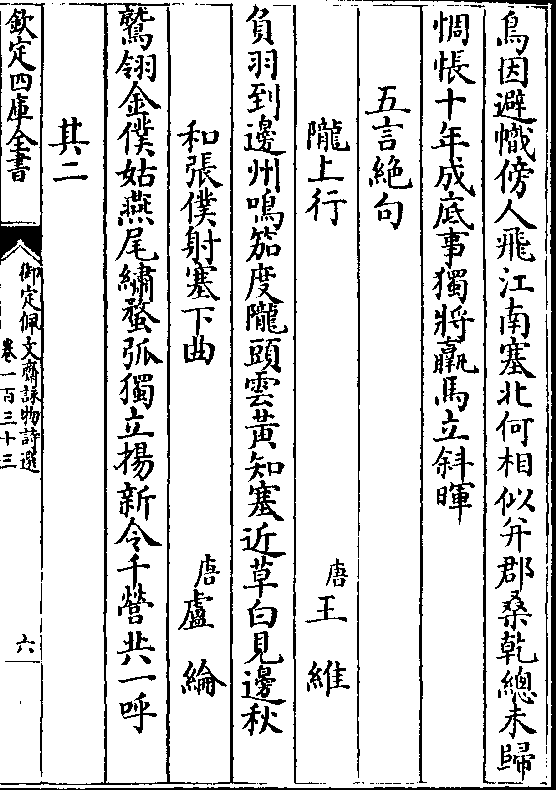 鳥因避幟傍人飛江南塞北何相似并郡桑乾總未歸
惆悵十年成底事獨將羸馬立斜暉
五言絕句
隴上行 唐王維
負羽到邊州鳴笳度隴頭雲黃知塞近草白見邊秋
和張僕射塞下曲 唐盧綸
鷲翎金僕姑燕尾繡蝥弧獨立揚新令千營共一呼
其二
欽定四庫全書
御定佩文齋詠物詩選
卷一百三十三
六